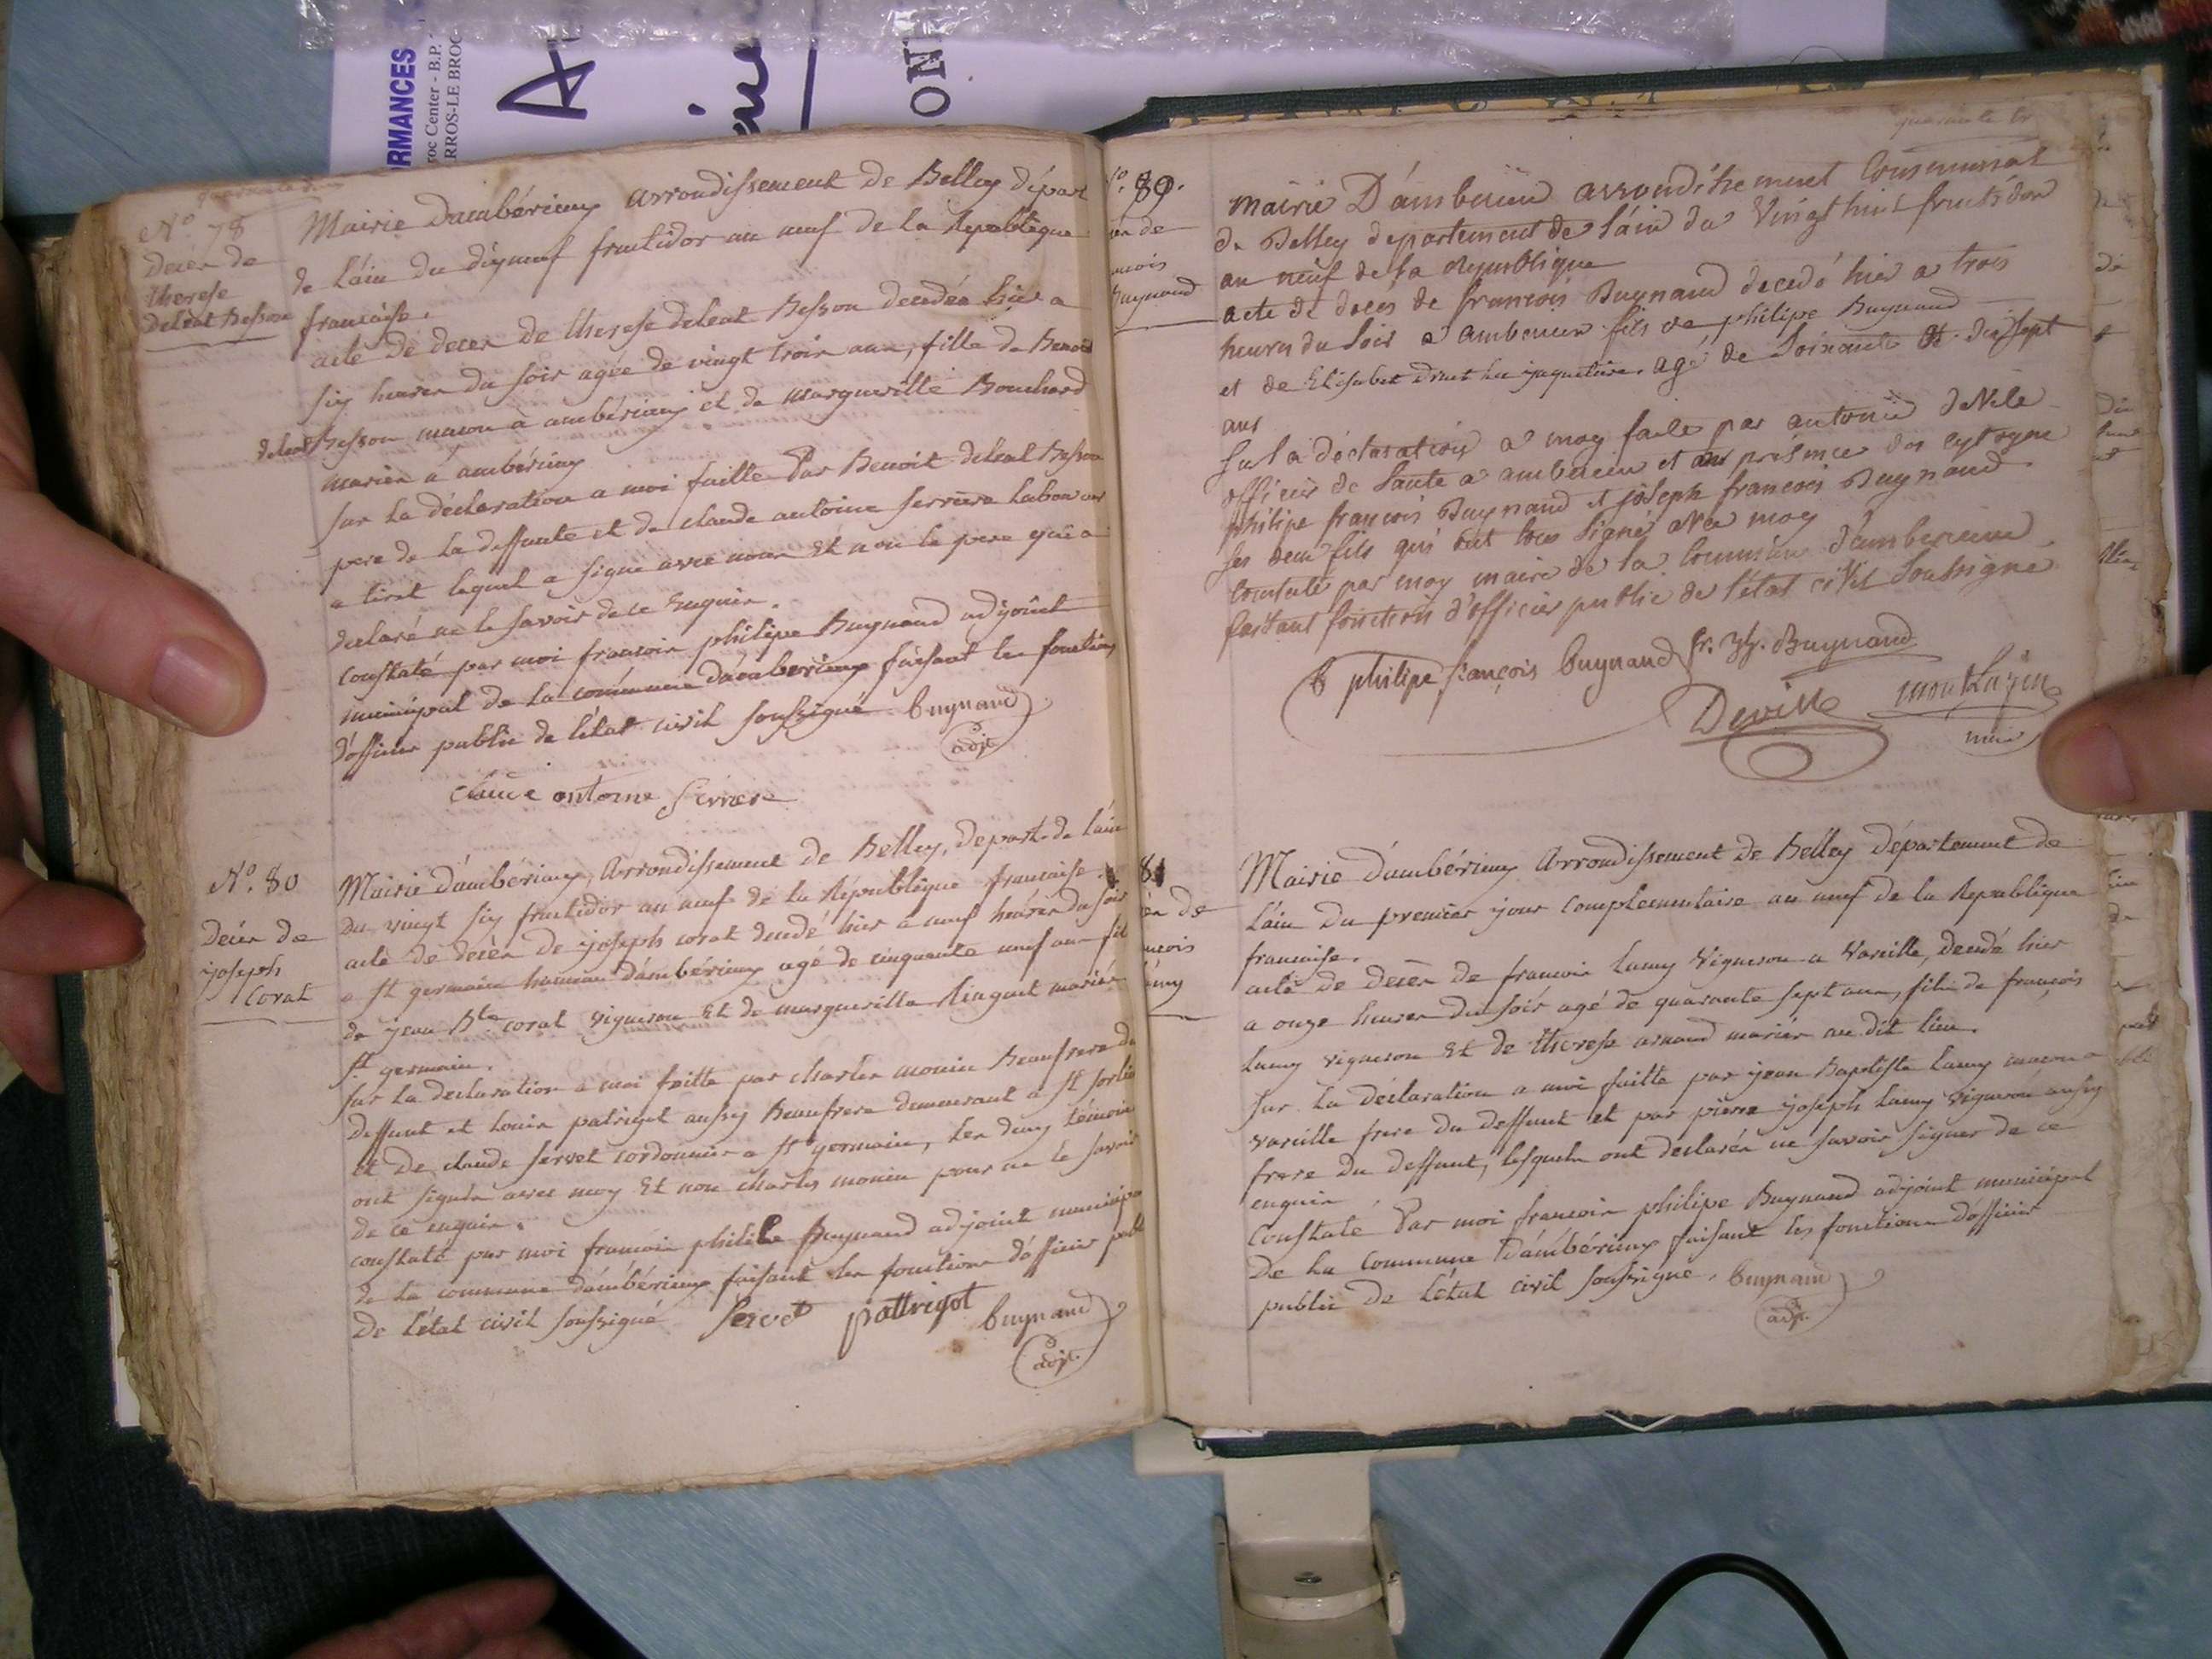 RMANCES
oc Center - B.P.
RROS-LE BROC-
ON
N° 78
Décès de
therese
deleat Besson
Mairie d'ambérieux arrondissement de Belley départ
de l'ain du dixneuf fructidor an neuf de la République
francaise.
acte de décès de therese deleat Besson decedée hier a
six heures du soir agée de vingt trois ans, fille de Benoit
deleat Besson macon à ambérieux et de margueritte Bouchard
mariés a ambérieux
sur la déclaration a moi faitte Par Benoit deleat Besson
pere de la deffunte et de claude antoine ferriere laboureur
a tiret lequel a signé avec nous Et non le pere qui a
declaré ne le savoir de ce Enquis.
Constaté par moi francois philipe Buynand adjoint
municipal de la commune d'ambérieux faisant les fonctions
d'officier public de l'état civil soussigné Buynand
adjt
claude antoine ferriere
N°. 80
Décès de
joseph
Corat
Mairie d'ambérieux, Arrondissement de Belley, depart. de l'ain
du vingt six fructidor an neuf de la République francaise.
acte de décès de joseph corat decedé hier a neuf heures du soir
a St germain hameau d'ambérieux agé de cinquante neuf ans fils
de jean Bte corat vigneron Et de margueritte Ringuet mariés
St germain.
sur la declaration a moi faitte par charles monin Beaufrere du
deffunt et louis patrigot aussy Beaufrere demeurant a St sorlin
et De claude servet cordonnier a St germain, les deux témoins
ont signés avec moy Et non charles monin pour ne le savoir
de ce enquis.
constaté par moi francois philipe Buynand adjoint municipa
de la commune d'ambérieux faisant les fonctions d'officier publ
De l'état civil soussigné Servet pattrigot buynand
adjt.
89.
de
ncois
Buynand
mairie D'amberieu arrondissement Communal
de Belley departement de l'ain du Vingt huit fructidor
an neuf de la Republique
acte de deces de francois Buynand decedé hier a trois
heures du soir a amberieu fils de philipe Buynand
et de Elisabet agé de soixante et dixsept
ans
sur la déclaration a moy faite par antoine deville
officier de santé a amberieu et en présence des cytoyens
philipe francois Buynand et joseph francois Buynand
ses deux fils qui ont tous signé avec moy
Constaté par moy maire de la commune d'amberieu
faisant fonctions d'officier public de l'état civil soussigné
philipe françois buynand fr. Buynand
Deville montlazin
maire
81
de
ncois
lamy
Mairie d'ambérieux Arrondissement de Belley département de
l'ain du premier jour complementaire an neuf de la Republique
francaise.
acte de décès de francois lamy Vigneron a Vareille, decedé hier
a onze heures du soir agé de quarante sept ans, fils de francois
lamy vigneron Et de therese arnaud mariés au dit lieu.
sur la déclaration a moi faitte par jean Baptiste lamy macon a
vareille frere du deffunt et par pierre joseph lamy vigneron aussy
frere du deffunt, lesquels ont declarés ne savoir signer de ce
enquis
Constaté Par moi francois philipe Buynand adjoint municipal
De la commune d'ambérieux faisant les fonctions d'officier
public de l'état civil soussigné. buynand
adjt.